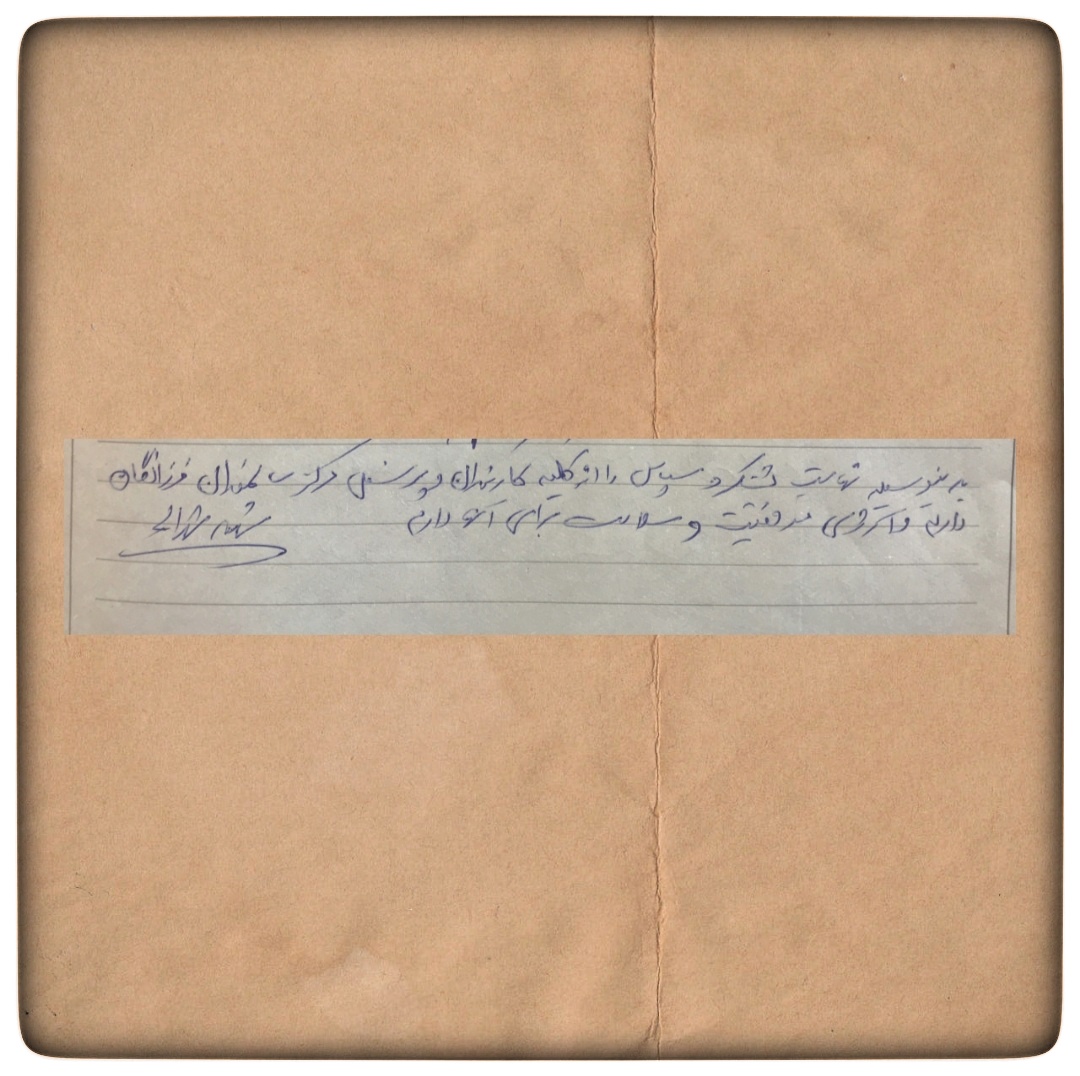 بدینوسیله نهایت تشکر و سپاس را از کلیه کارمندان و پرسنل مرکز سالمندان فرزانگان
دارم و آرزوی موفقیت و سلامت برای آنها دارم